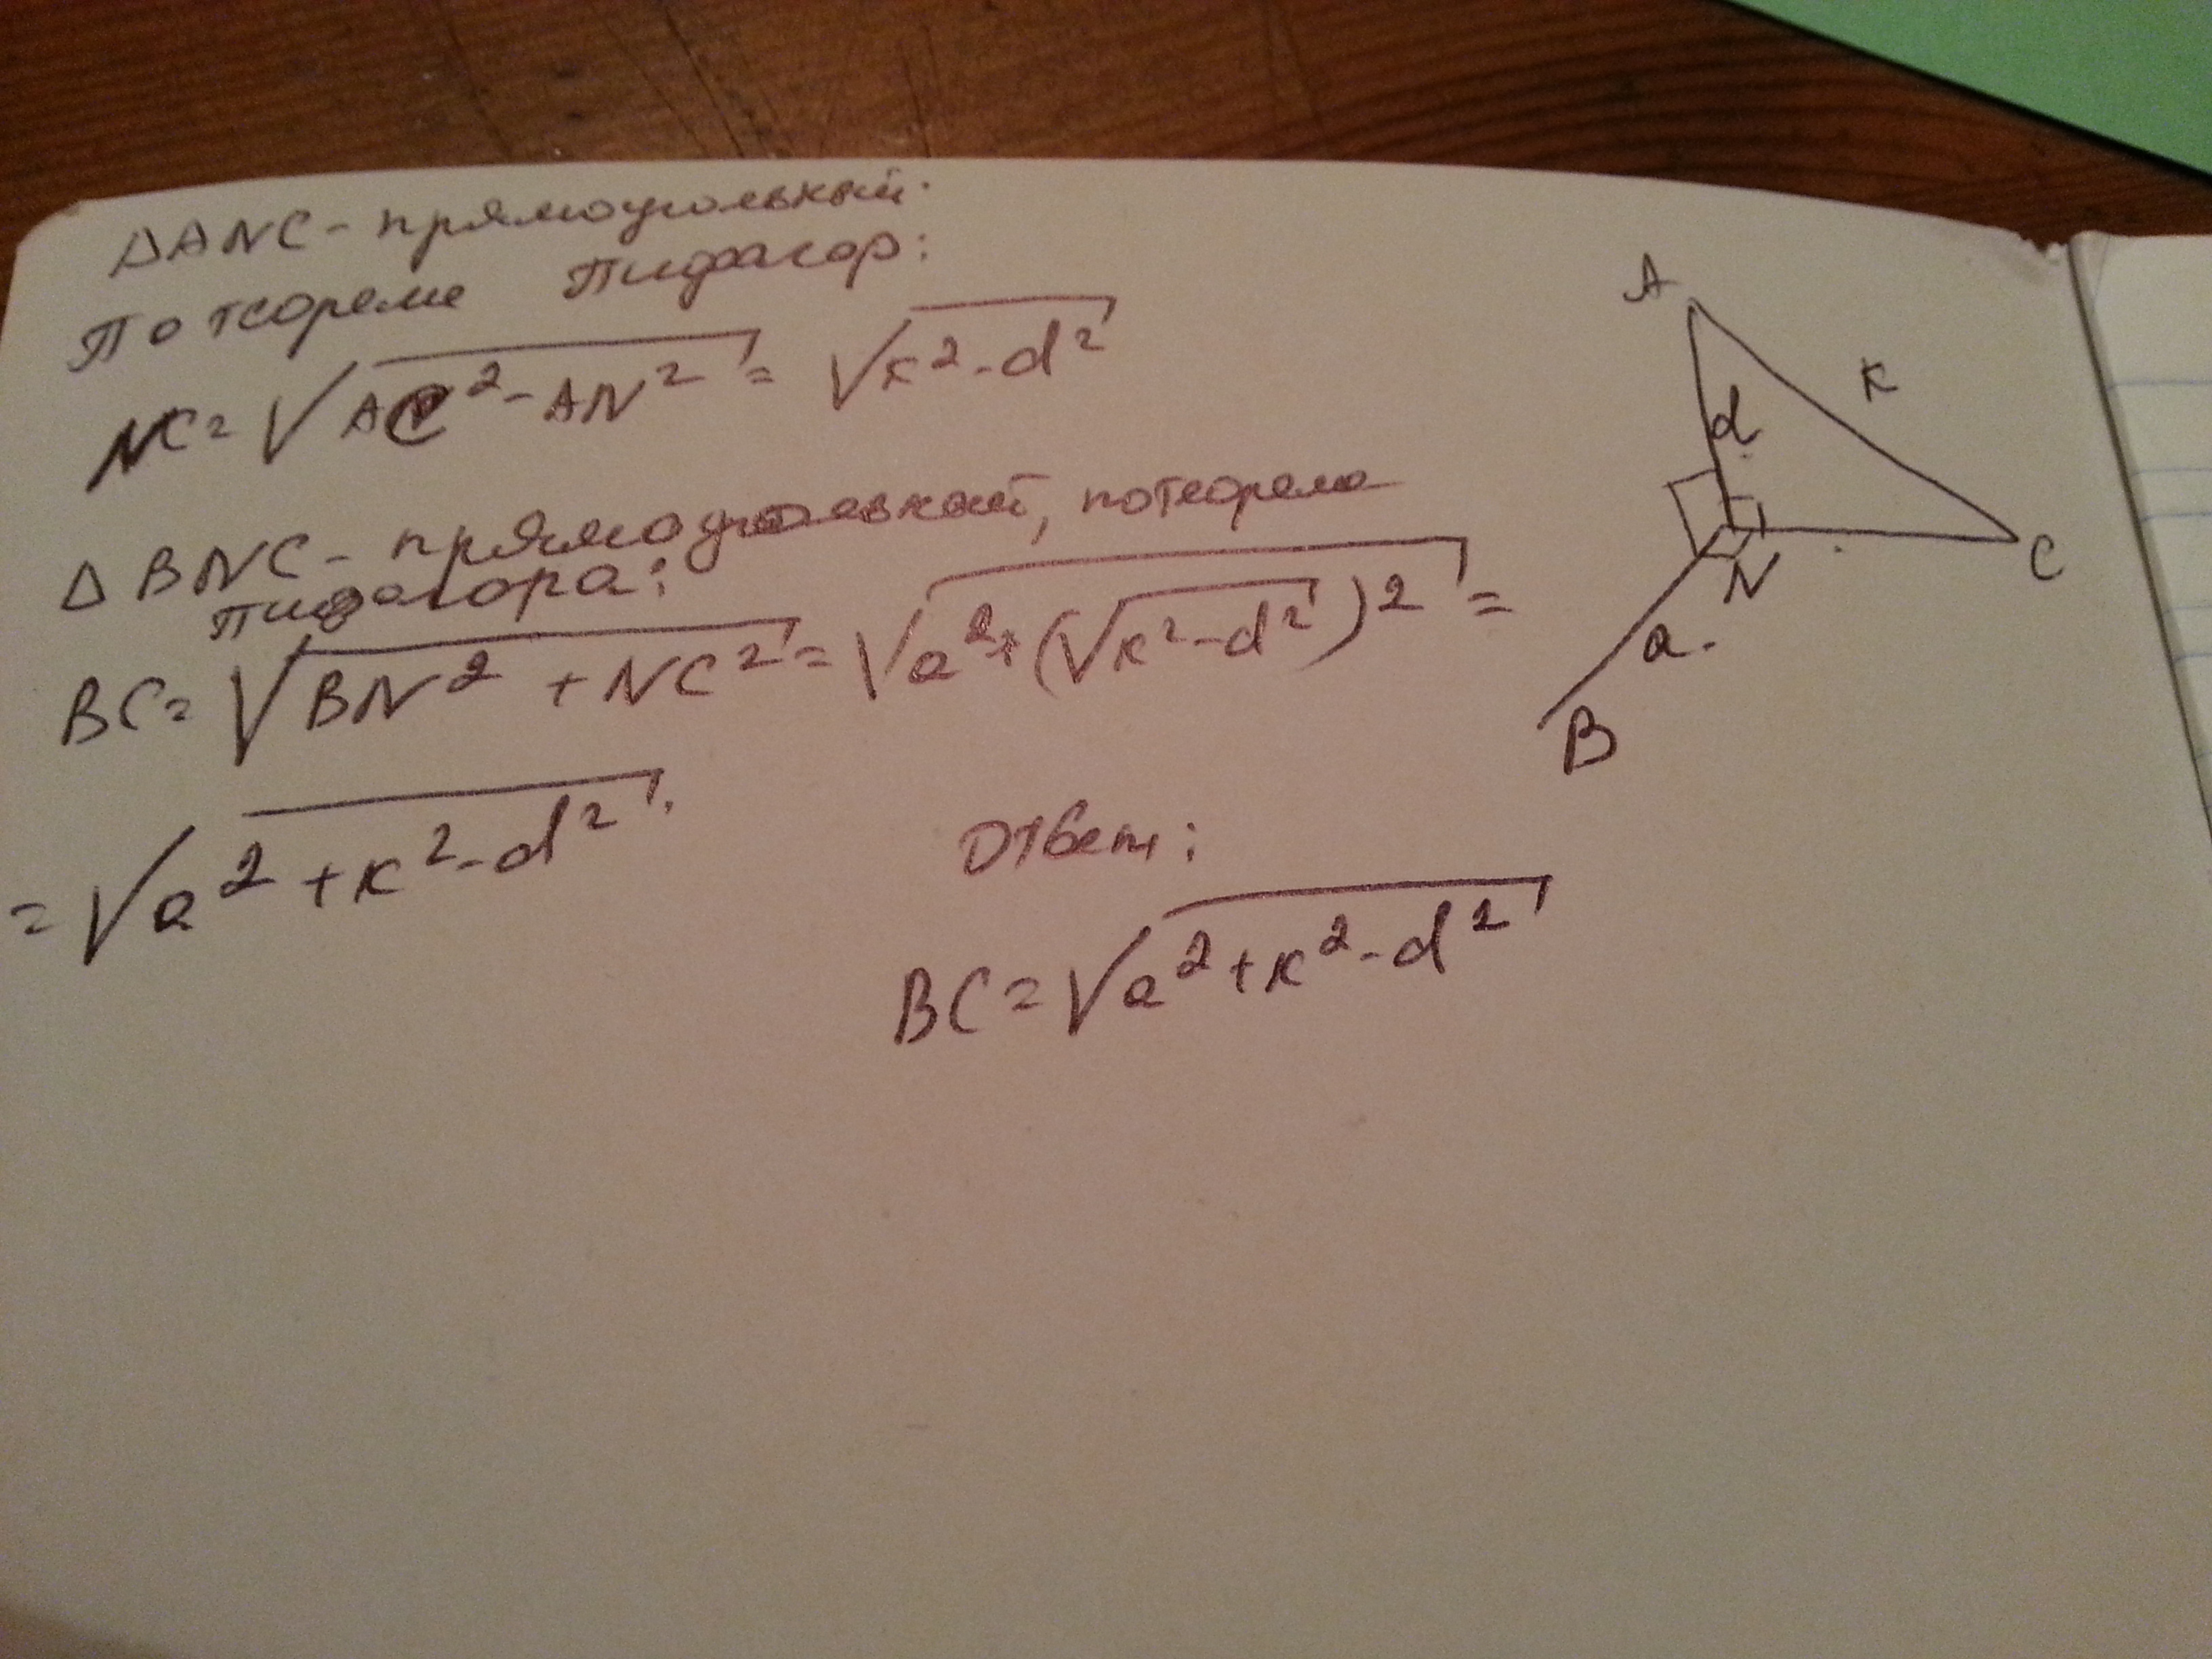 ΔANC - прямоугольный.
По теореме Пифагор:
NC = √AC² - AN² = √к² - d²
Δ BNC - прямоугольный, по теорема
Пифагора:
BC = √BN² + NC² = √a² + (√к² - d²)² =
= √a² + к² - d².
Ответ:
BC = √a² + к² - d²
A
к
d
C
N
a.
B